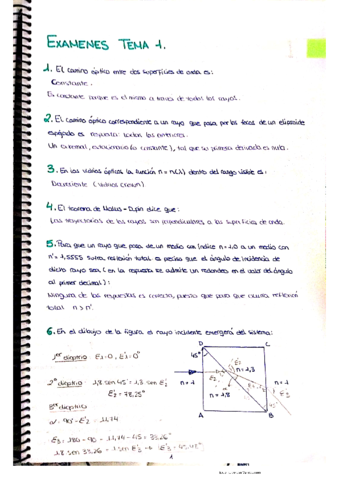 EXAMENES TEMA 1.
1. El camino óptico entre dos superficies de onda es:
Constante.
Es constante porque es el mismo a través de todos los rayos.
2. El camino óptico correspondiente a un rayo que pasa por los focos de un elipsoide
espejado es respuesta: todas las anteriores.
Un extremal, estacionario (o constante), tal que su primera derivada es nula.
3. En los vidrios ópticos la función n = n(λ) dentro del rango visible es:
Decreciente (vidrios crown)
4. El teorema de Malus-Dupin dice que:
Las trayectorias de los rayos son perpendiculares a las superficies de onda.
5. Para que un rayo que pasa de un medio con índice n=1,0 a un medio con
n'=1,5555 sufra reflexión total es preciso que el ángulo de incidencia de
dicho rayo sea (en la respuesta se admite un redondeo en el valor del ángulo
al primer decimal):
Ninguna de las respuestas es correcta, puesto que para que ocurra reflexión
total n > n'.
6. En el dibujo de la figura el rayo incidente emergerá del sistema:
1er dioptrio E1=0, E'1=0°
2º dioptrio 1,8 sen 45 = 1,3 sen E'2
E'2 = 78,25°
3er dioptrio
90-E'2 = 11,74
E3 = 180-90-11,74-45 = 33,26°
1,8 sen 33,26 = 1 sen E'3
D
C
45°
n=1
n=1,3
n=1
n=1,8
45°
A
B
1